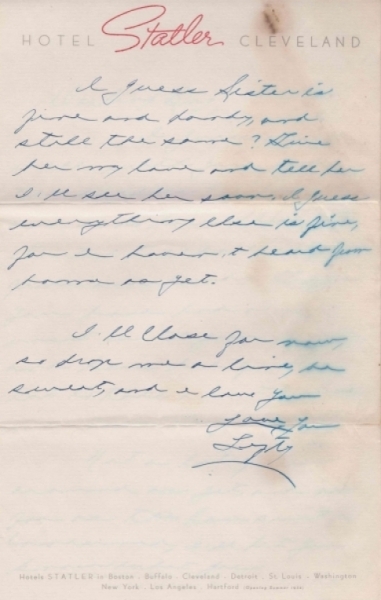 HOTEL Statler CLEVELAND
I guess Sister is
fine and dandy, and
still the same? Give
her my love and tell her
I'll see her soon. I guess
everything else is fine,
for I haven't heard from
home as yet.
I'll close for now,
so drop me a line, be
sweet, and I love you
Love You
Hotels STATLER in Boston · Buffalo · Cleveland · Detroit · St. Louis · Washington
New York · Los Angeles · Hartford